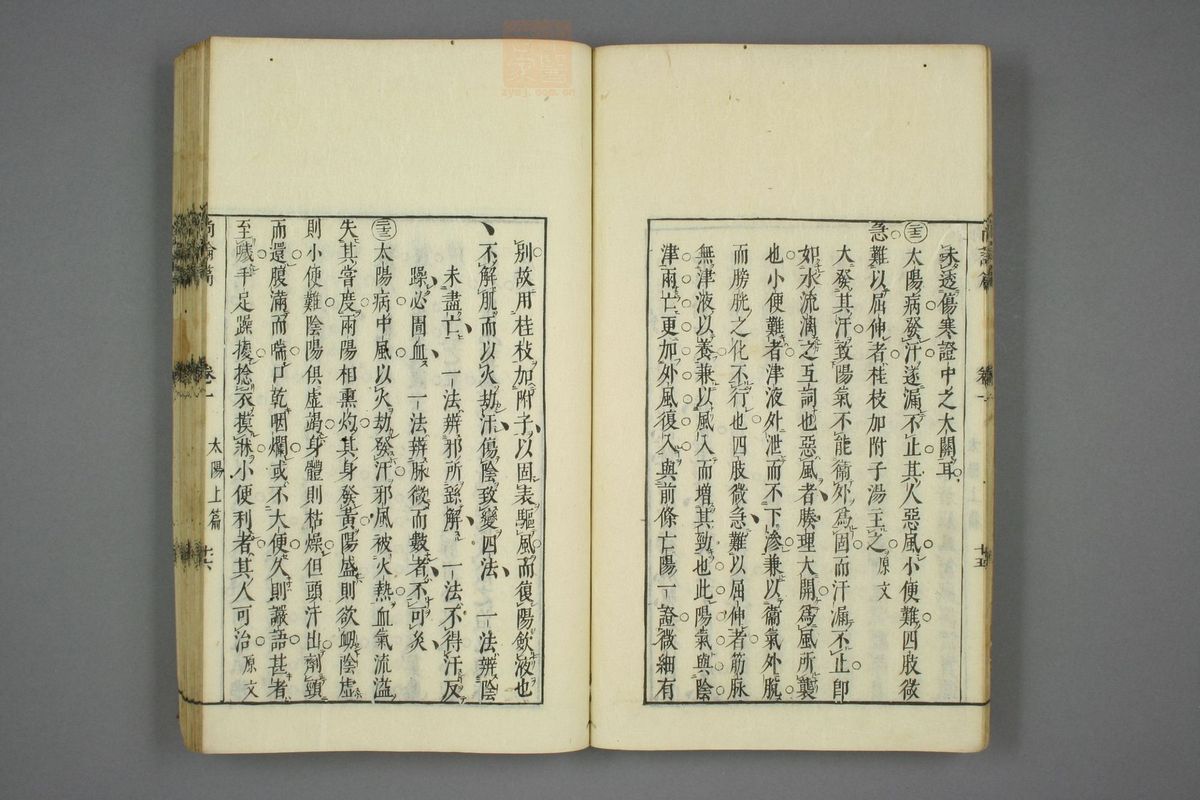 尚論篇 卷一 十五
未透傷寒證中之大關耳
二十二 太陽病發汗遂漏不止其人惡風小便難四肢微
急難以屈伸者桂枝加附子湯主之 原文
大發其汗致陽氣不能衞外爲固而汗漏不止卽
如水流漓之互詞也惡風者腠理大開爲風所襲
也小便難者津液外泄而不下滲兼以衞氣外脫
而膀胱之化不行也四肢微急難以屈伸者筋脉
無津液以養兼以風入而增其勁也此陽氣與陰
津兩亡更加外風復入與前條亡陽一證微細有
別故用桂枝加附子以固表驅風而復陽歛液也
不解肌而以火劫汗傷陰致變四法 一法辨陰
未盡亡 一法辨邪所繇解 一法不得汗反
躁必圊血 一法辨脉微而數者不可灸
二十三 太陽病中風以火劫發汗邪風被火熱血氣流溢
失其常度兩陽相熏灼其身發黃陽盛則欲衂陰虛
則小便難陰陽俱虛竭身體則枯燥但頭汗出劑頸
而還腹滿而喘口乾咽爛或不大便久則讝語甚者
至噦手足躁擾捻衣摸牀小便利者其人可治 原文
尚論篇 卷一 太陽上篇 十六
zysj.com.cn